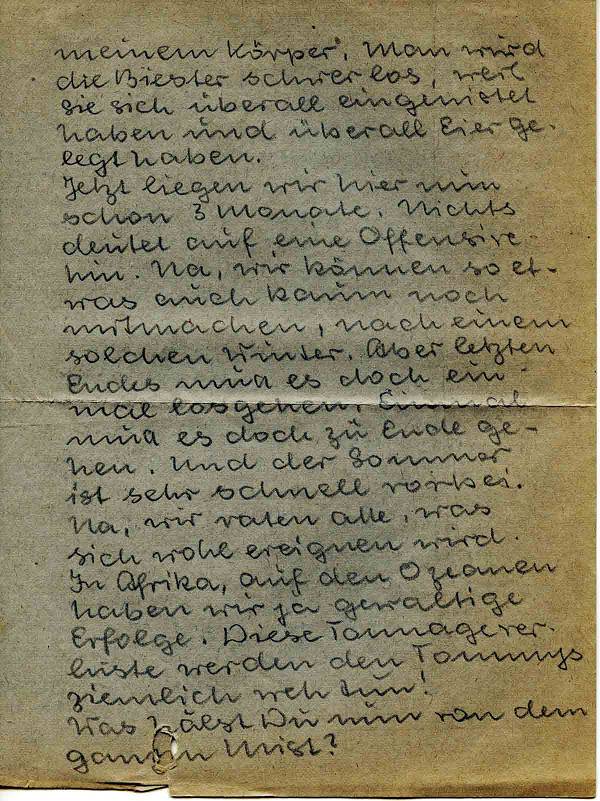 meinem Körper. Man wird
die Biester schwer los, weil
sie sich überall eingenistet
haben und überall Eier ge-
legt haben.
Jetzt liegen wir hier nun
schon 3 Monate. Nichts
deutet auf eine Offensive
hin. Na, wir können so et-
was auch kaum noch
mitmachen, nach einem
solchen Winter. Aber letzten
Endes muß es doch ein-
mal losgehen. Einmal
muß es doch zu Ende ge-
hen. Und der Sommer
ist sehr schnell vorbei.
Na, wir raten alle, was
sich wohl ereignen wird.
In Afrika, auf den Ozeanen
haben wir ja gewaltige
Erfolge. Diese Tonnagever-
luste werden den Tommys
ziemlich weh tun!
Was hälst Du nun von dem
ganzen Mist?